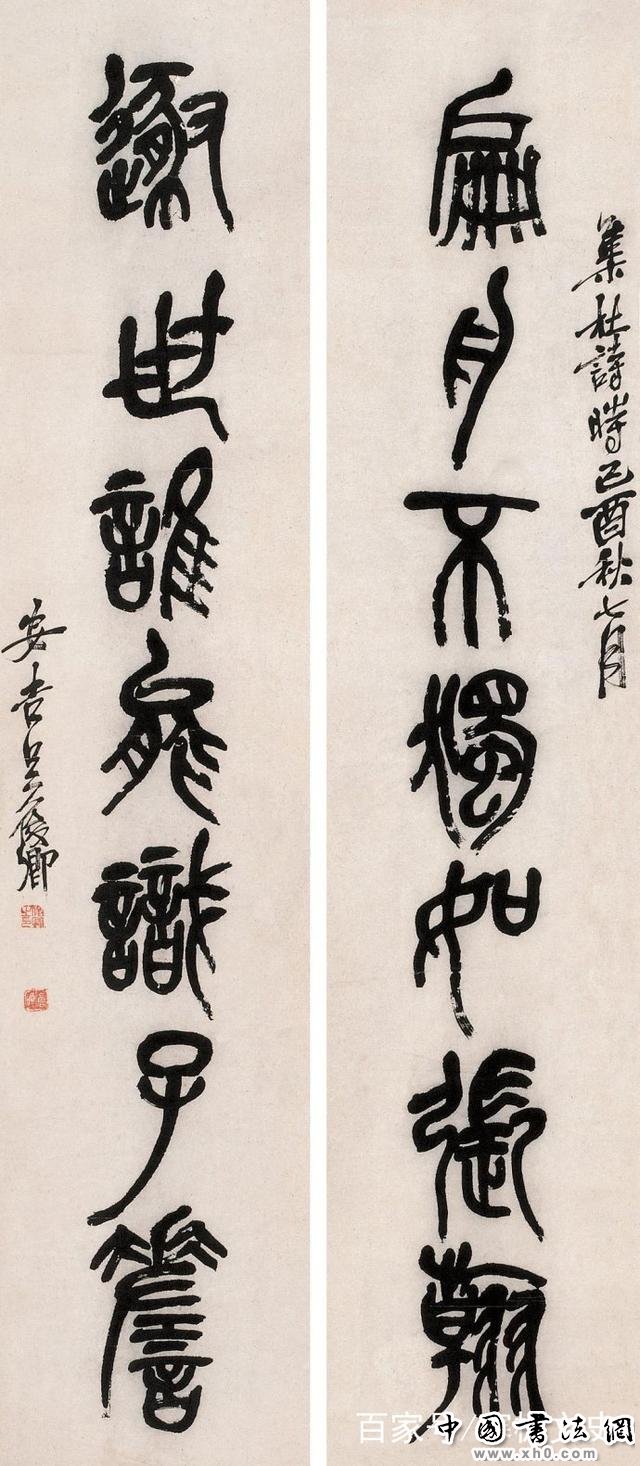 集杜詩時己酉秋七月
扁舟不獨如張翰
世誰能識子詹
安吉吳俊卿
百家号
中國書法網
www.xh0.com